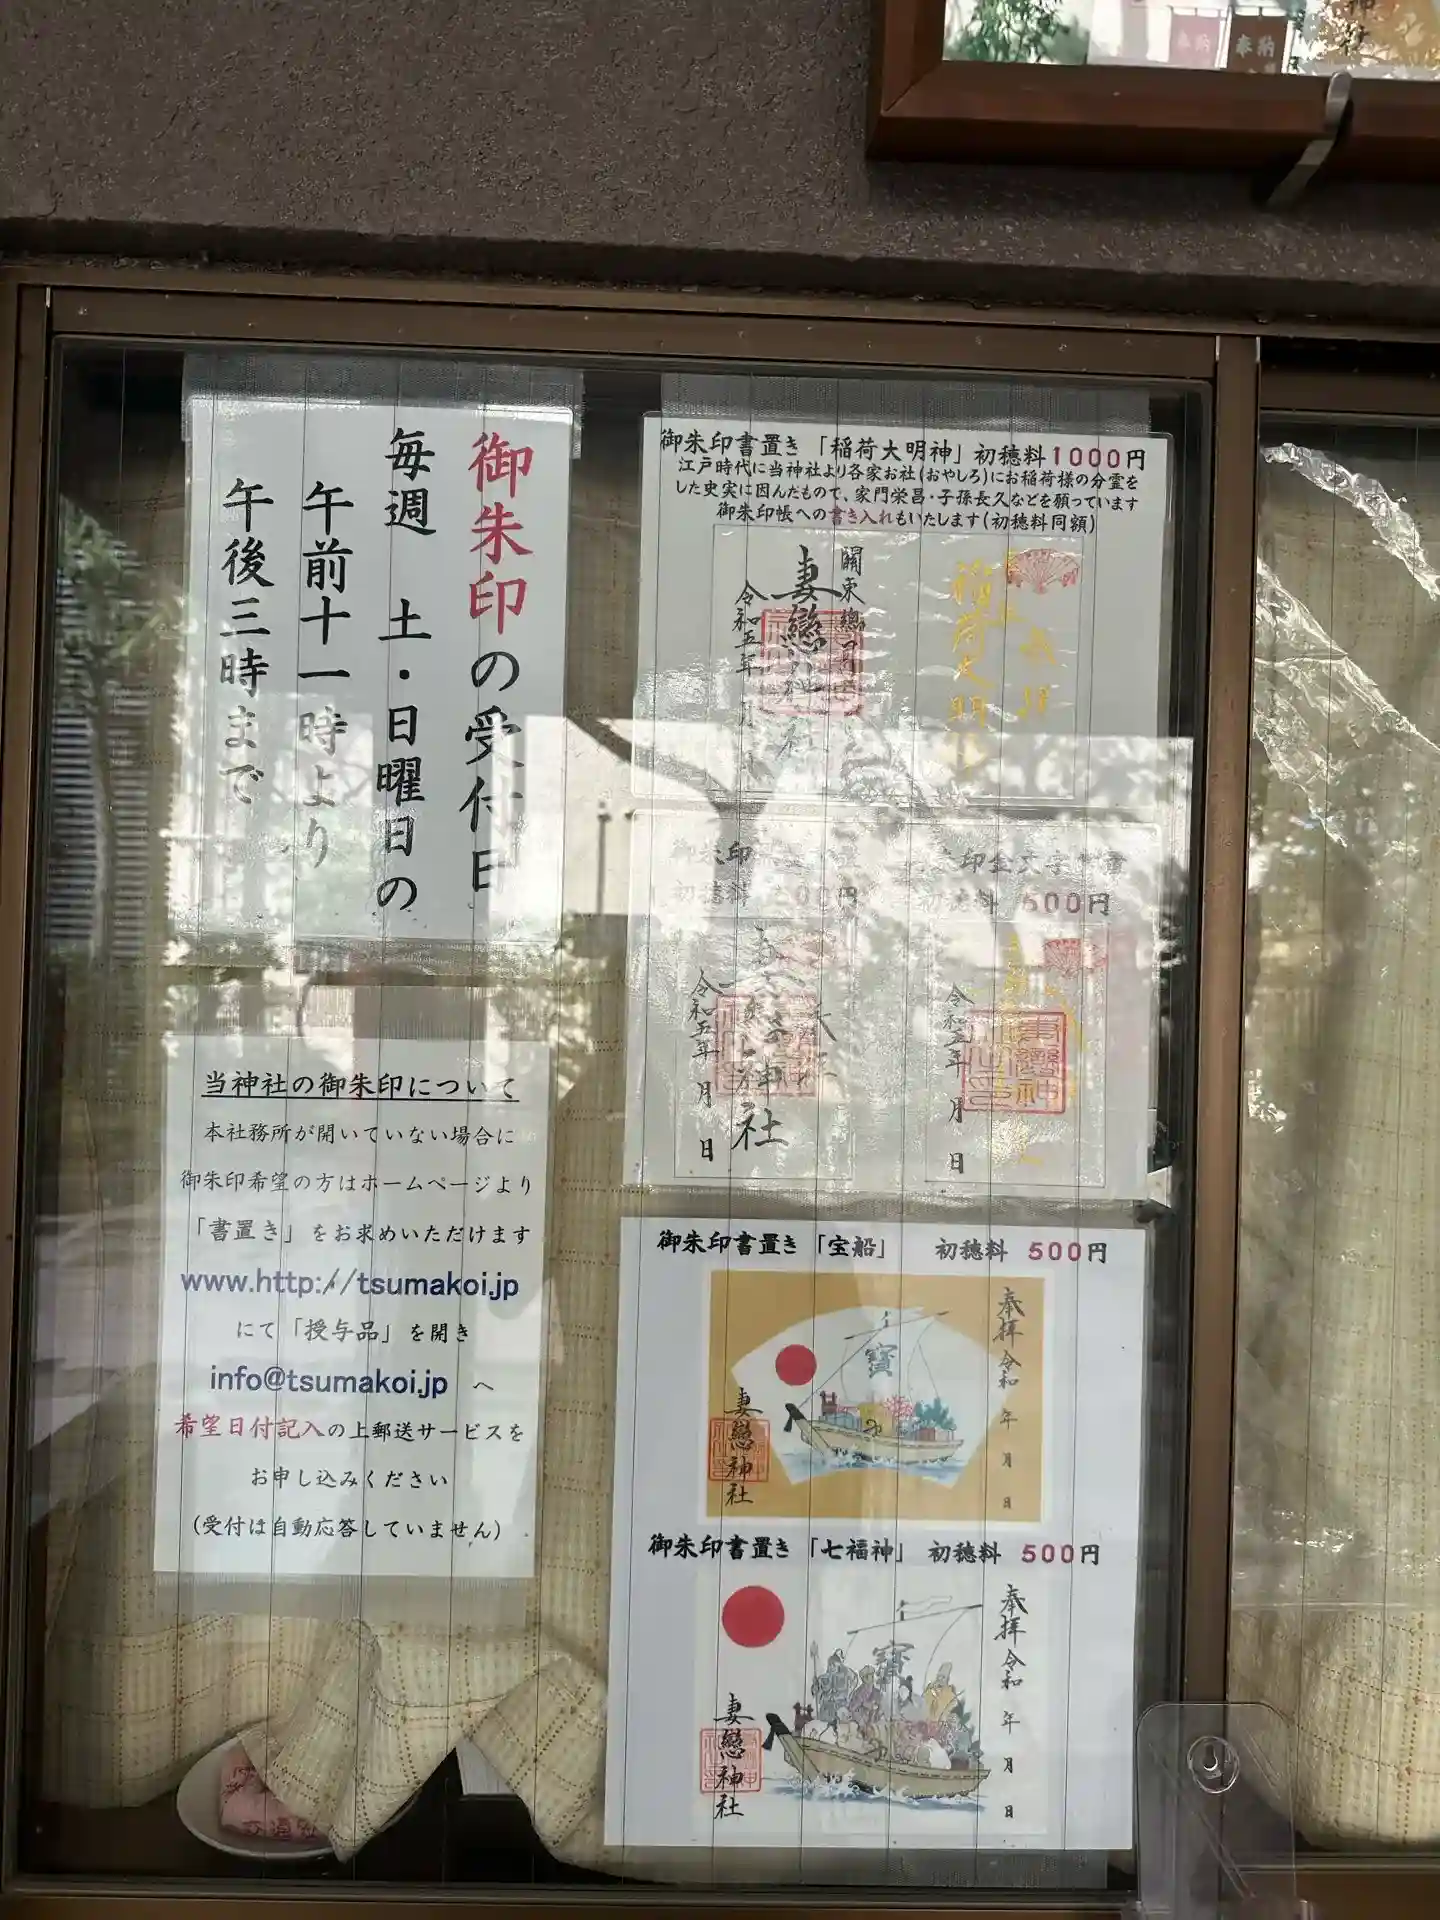 奉納
奉納
神社
御朱印の受付日
毎週 土・日曜日の
午前十一時より
午後三時まで
当神社の御朱印について
本社務所が開いていない場合に
御朱印希望の方はホームページより
「書置き」をお求めいただけます
www.http://tsumakoi.jp
にて「授与品」を開き
info@tsumakoi.jp へ
希望日付記入の上郵送サービスを
お申し込みください
(受付は自動応答していません)
御朱印書置き「稲荷大明神」初穂料1000円
江戸時代に当神社より各家お社(おやしろ)にお稲荷様の分霊を
した史実に因んだもので、家門栄昌・子孫長久などを願っています
御朱印帳への書き入れもいたします(初穂料同額)
稲荷大明神
關東總司
妻戀神社
令和五年 月
御朱印
初穂料 500円
令和五年 月 日
神社
朱印金文字
初穂料 500円
令和五年 月 日
御朱印書置き「宝船」 初穂料 500円
奉拝 令和 年 月 日
寶
妻戀神社
御朱印書置き「七福神」 初穂料 500円
奉拝 令和 年 月 日
寶
妻戀神社